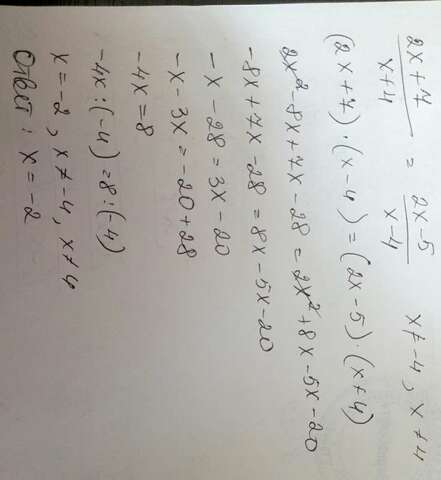 2x+7/x+4 = 2x-5/x-4 x≠-4, x≠4
(2x+7)·(x-4)=(2x-5)·(x+4)
2x²-8x+7x-28=2x²+8x-5x-20
-8x+7x-28=8x-5x-20
-x-28=3x-20
-x-3x=-20+28
-4x=8
-4x:(-4)=8:(-4)
x=-2, x≠-4, x≠4
Ответ: x=-2